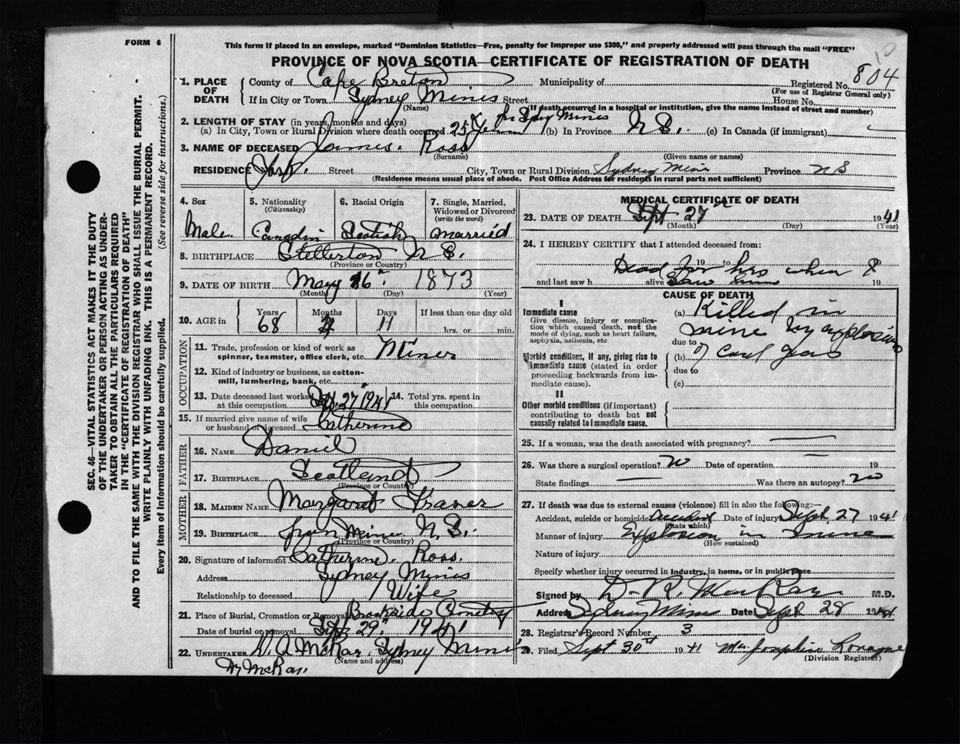 FORM 6
This form if placed in an envelope, marked "Dominion Statistics—Free, penalty for improper use $300," and properly addressed will pass through the mail "FREE"
10
PROVINCE OF NOVA SCOTIA—CERTIFICATE OF REGISTRATION OF DEATH
SEC. 46—VITAL STATISTICS ACT MAKES IT THE DUTY
OF THE UNDERTAKER OR PERSON ACTING AS UNDER-
TAKER TO OBTAIN ALL THE PARTICULARS REQUIRED
IN THE "CERTIFICATE OF REGISTRATION OF DEATH"
AND TO FILE THE SAME WITH THE DIVISION REGISTRAR WHO SHALL ISSUE THE BURIAL PERMIT.
WRITE PLAINLY WITH UNFADING INK. THIS IS A PERMANENT RECORD.
Every item of information should be carefully supplied. (See reverse side for instructions.)
1. PLACE OF DEATH
County of Cape Breton Municipality of Registered No. 804
(For use of Registrar General only)
If in City or Town Sydney Mines Street House No.
(Name) If death occurred in a hospital or institution, give the name instead of street and number)
2. LENGTH OF STAY (in years, months and days)
(a) In City, Town or Rural Division where death occurred 25 (b) In Province N.S. (c) In Canada (if immigrant)
3. NAME OF DECEASED James. Ross
(Surname) (Given name or names)
RESIDENCE Street City, Town or Rural Division Sydney Province N S
(Residence means usual place of abode. Post Office Address for residents in rural parts not sufficient)
4. Sex 5. Nationality (Citizenship) 6. Racial Origin 7. Single, Married, Widowed or Divorced (write the word)
Male Scottish Married
8. BIRTHPLACE Stellerton N.S.
(Province or Country)
9. DATE OF BIRTH May 16 1873
(Month) (Day) (Year)
10. AGE in Years Months Days If less than one day old
68 11 hrs. or min.
OCCUPATION
11. Trade, profession or kind of work as spinner, teamster, office clerk, etc. Miner
12. Kind of industry or business, as cotton-mill, lumbering, bank, etc.
13. Date deceased last worked at this occupation 27 1941 14. Total yrs. spent in this occupation
15. If married give name of wife or husband of deceased Catherine
FATHER
16. NAME Daniel
17. BIRTHPLACE Scotland
(Province or Country)
MOTHER
18. MAIDEN NAME Margaret Fraser
19. BIRTHPLACE N.S.
(Province or Country)
20. Signature of informant Catherine Ross.
Address Sydney Mines
Relationship to deceased Wife
21. Place of Burial, Cremation or Removal Brookside Cemetery
Date of burial or removal Sept 29 1941
22. UNDERTAKER Sydney Mines
(Name and address)
MEDICAL CERTIFICATE OF DEATH
23. DATE OF DEATH Sept 27 1941
(Month) (Day) (Year)
24. I HEREBY CERTIFY that I attended deceased from
19 to 19
Dead for hrs when I
and last saw h alive 19
CAUSE OF DEATH
I
Immediate cause
Give disease, injury or complication which caused death, not the mode of dying, such as heart failure, asphyxia, asthenia, etc
(a) Killed in
mine by explosion
due to
Morbid conditions, if any, giving rise to immediate cause (stated in order proceeding backwards from immediate cause).
(b) of
due to
(c)
II
Other morbid conditions (if important) contributing to death but not causally related to immediate cause.
25. If a woman, was the death associated with pregnancy?
26. Was there a surgical operation? no Date of operation 19
State findings Was there an autopsy? no
27. If death was due to external causes (violence) fill in also the following:
Accident, suicide or homicide accident Date of injury Sept 27 1941
(State which)
Manner of injury Explosion in mine
(How sustained)
Nature of injury
Specify whether injury occurred in industry, in home, or in public place
Signed by M.D.
Address Sydney Mines Date Sept 28 1941
28. Registrar's Record Number 3
29. Filed Sept 30th 1941 Josephine
(Division Registrar)